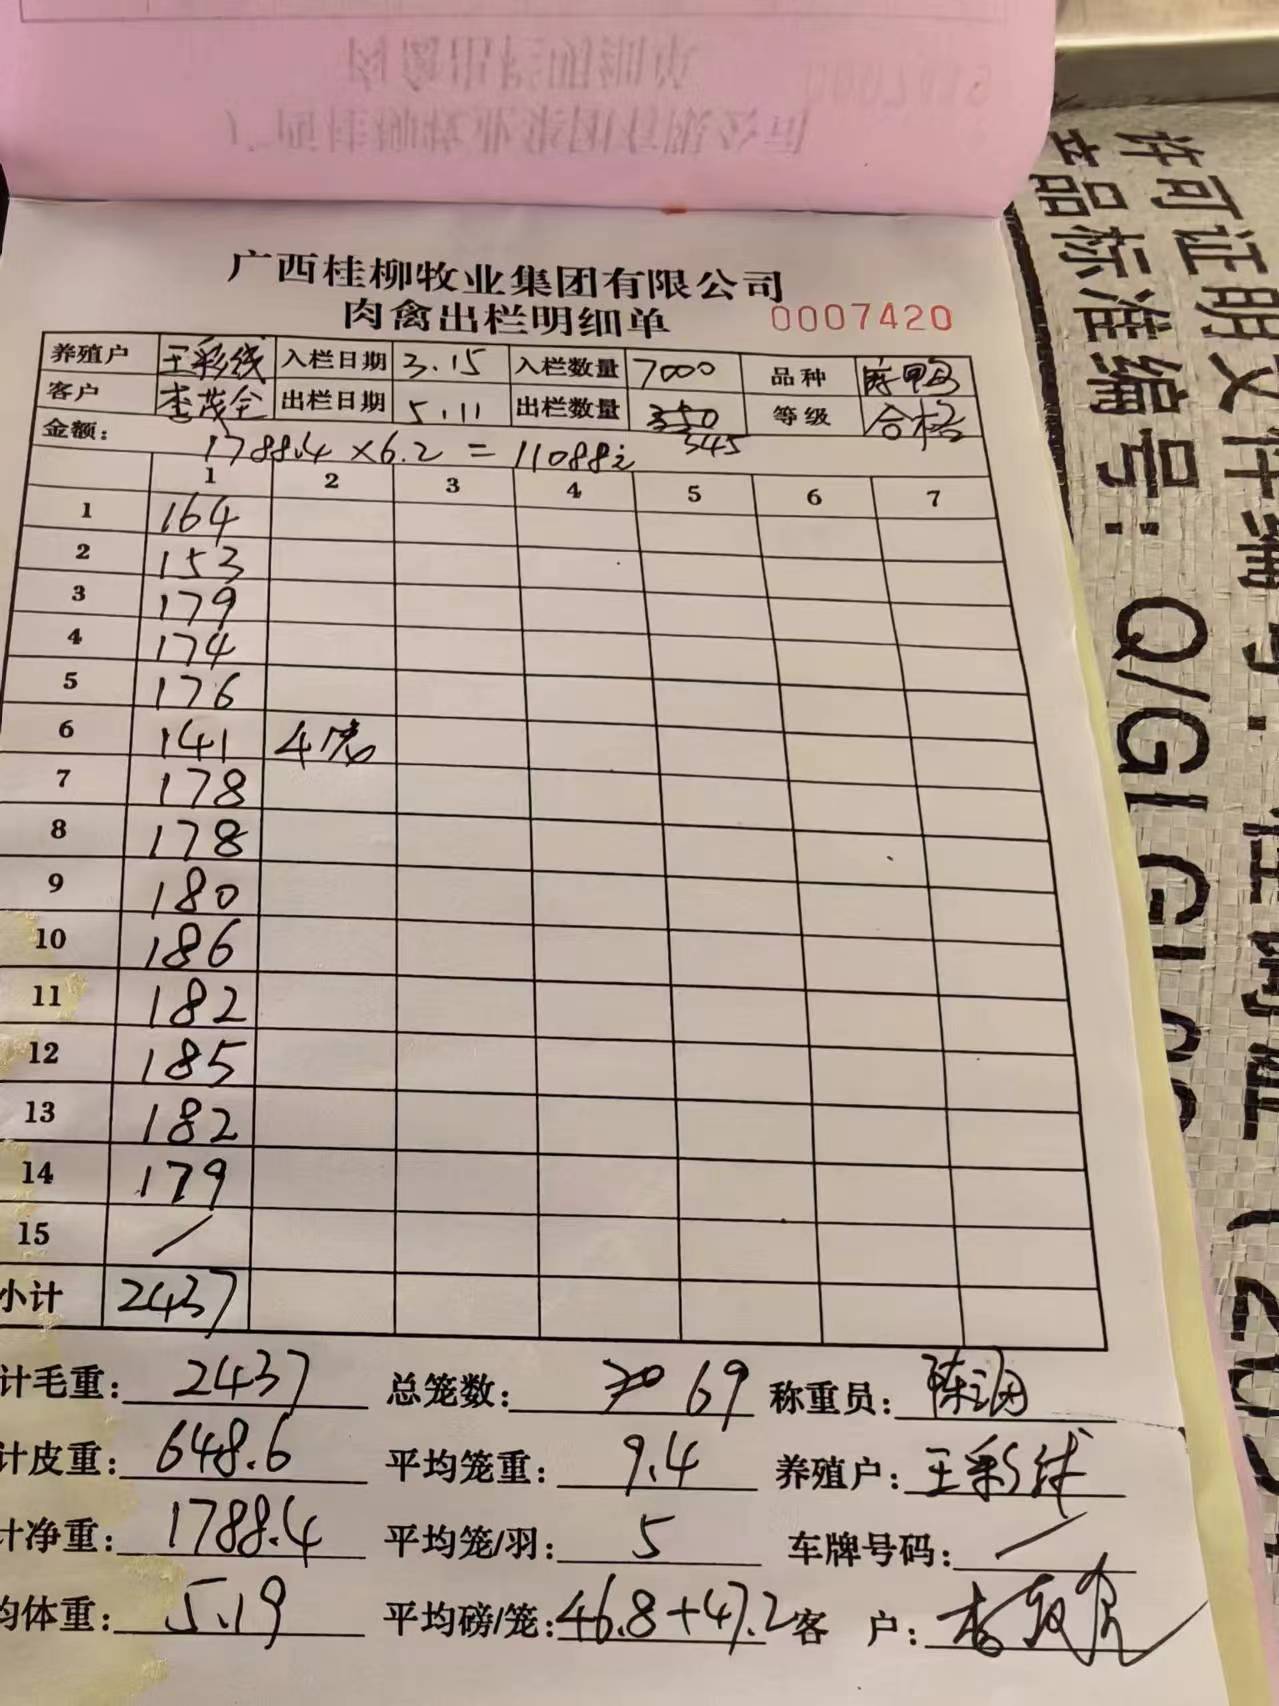 广西桂柳牧业集团有限公司
肉禽出栏明细单 0007420
养殖户 王彩线 入栏日期 3.15 入栏数量 7000 品种
客户 李茂全 出栏日期 5.11 出栏数量 350 345 等级 合格
金额: 1788.4×6.2=11088
1 2 3 4 5 6 7
1 164
2 153
3 179
4 174
5 176
6 141 4笼
7 178
8 178
9 180
10 186
11 182
12 185
13 182
14 179
15 /
小计 2437
计毛重: 2437 总笼数: 70 69 称重员:
计皮重: 648.6 平均笼重: 9.4 养殖户: 王彩线
计净重: 1788.4 平均笼/羽: 5 车牌号码: /
均体重: 5.19 平均磅/笼: 46.8+47.2 客 户:
许可证明文件编号:
产品标准编号: Q/GLGL